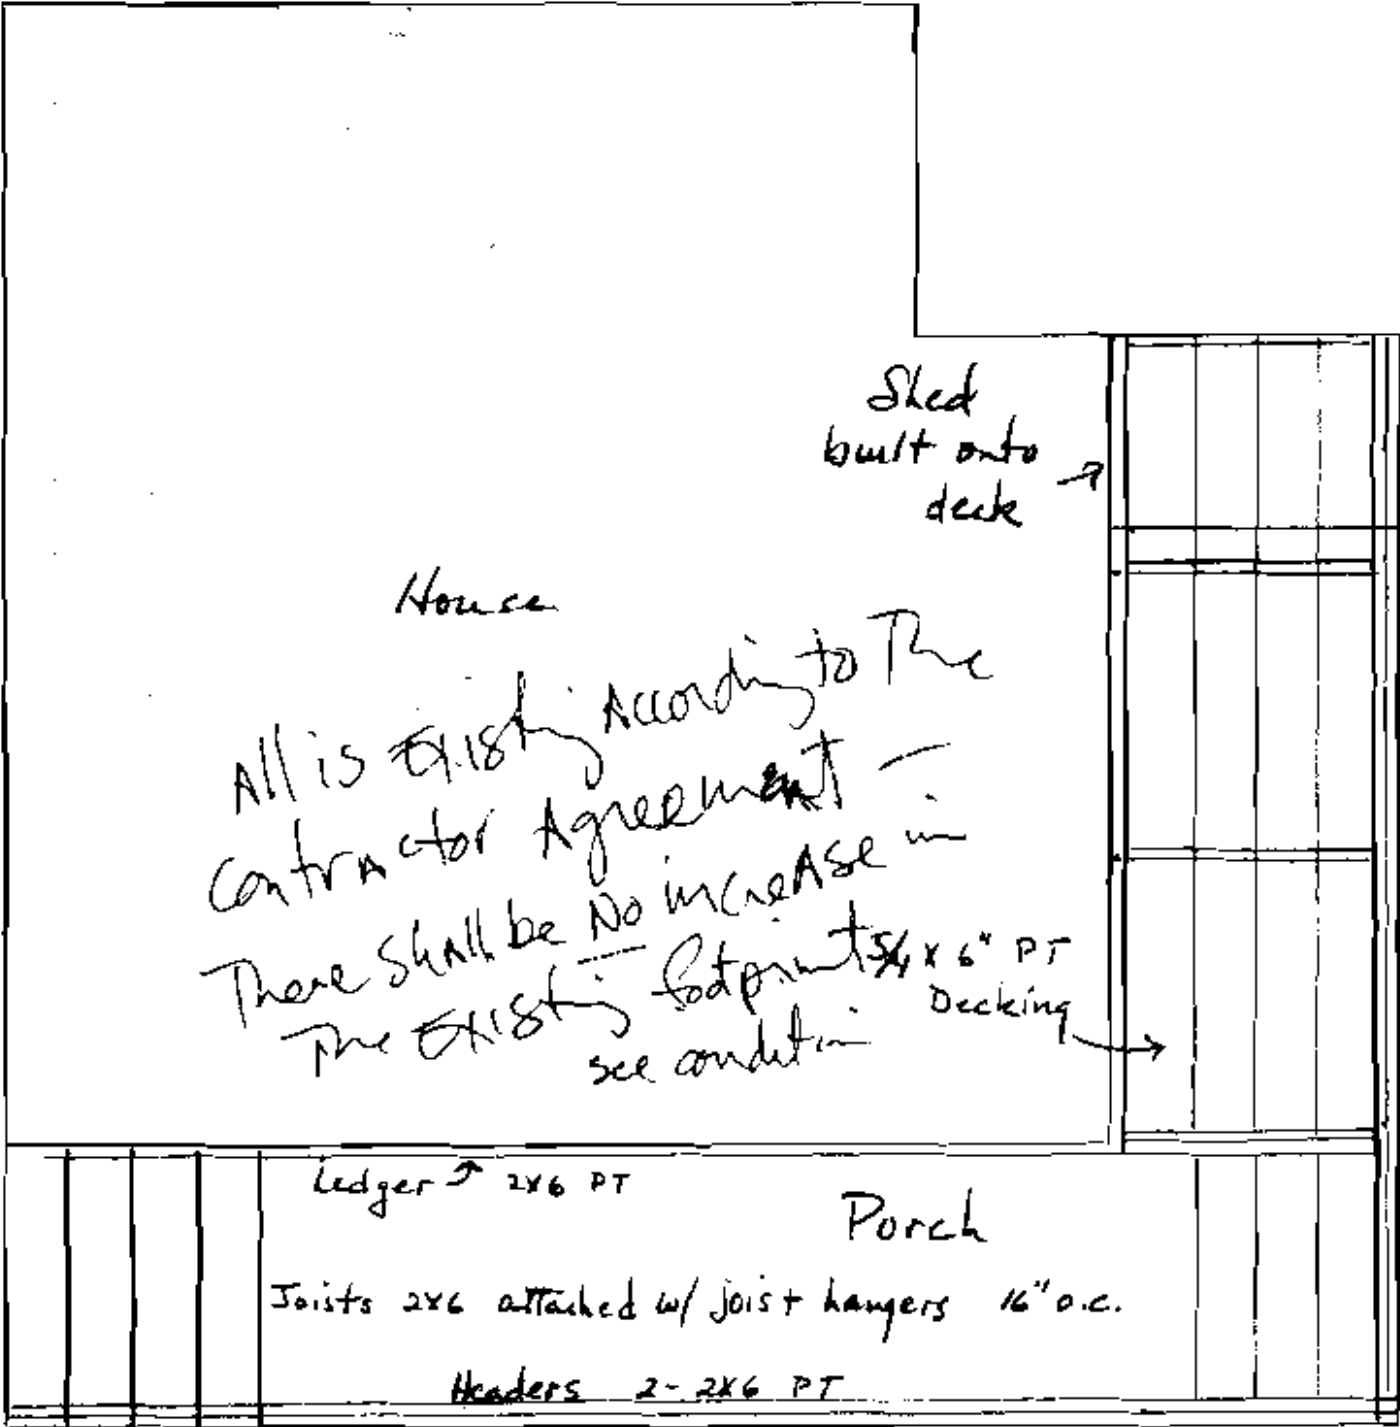 Shed
built onto
deck
House
All is Existing According to The
Contractor Agreement —
There Shall be No increase in
The Existing footprint
see condition
5/4 x 6" PT
Decking
Ledger 2x6 PT
Porch
Joists 2x6 attached w/ joist hangers 16" o.c.
Headers 2- 2x6 PT